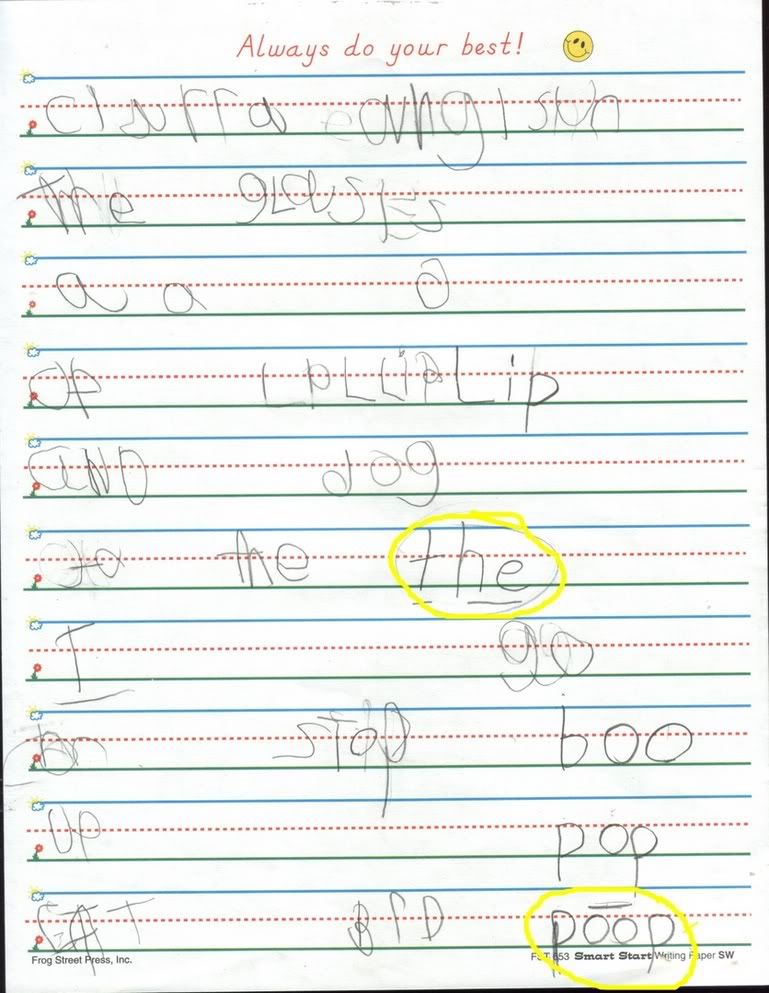 Always do your best!
The glasses
a a a
op LoLLipLip
and dog
to the the
I go
on stop boo
up pop
EAT poop
Frog Street Press, Inc. Smart Start Writing Paper SW